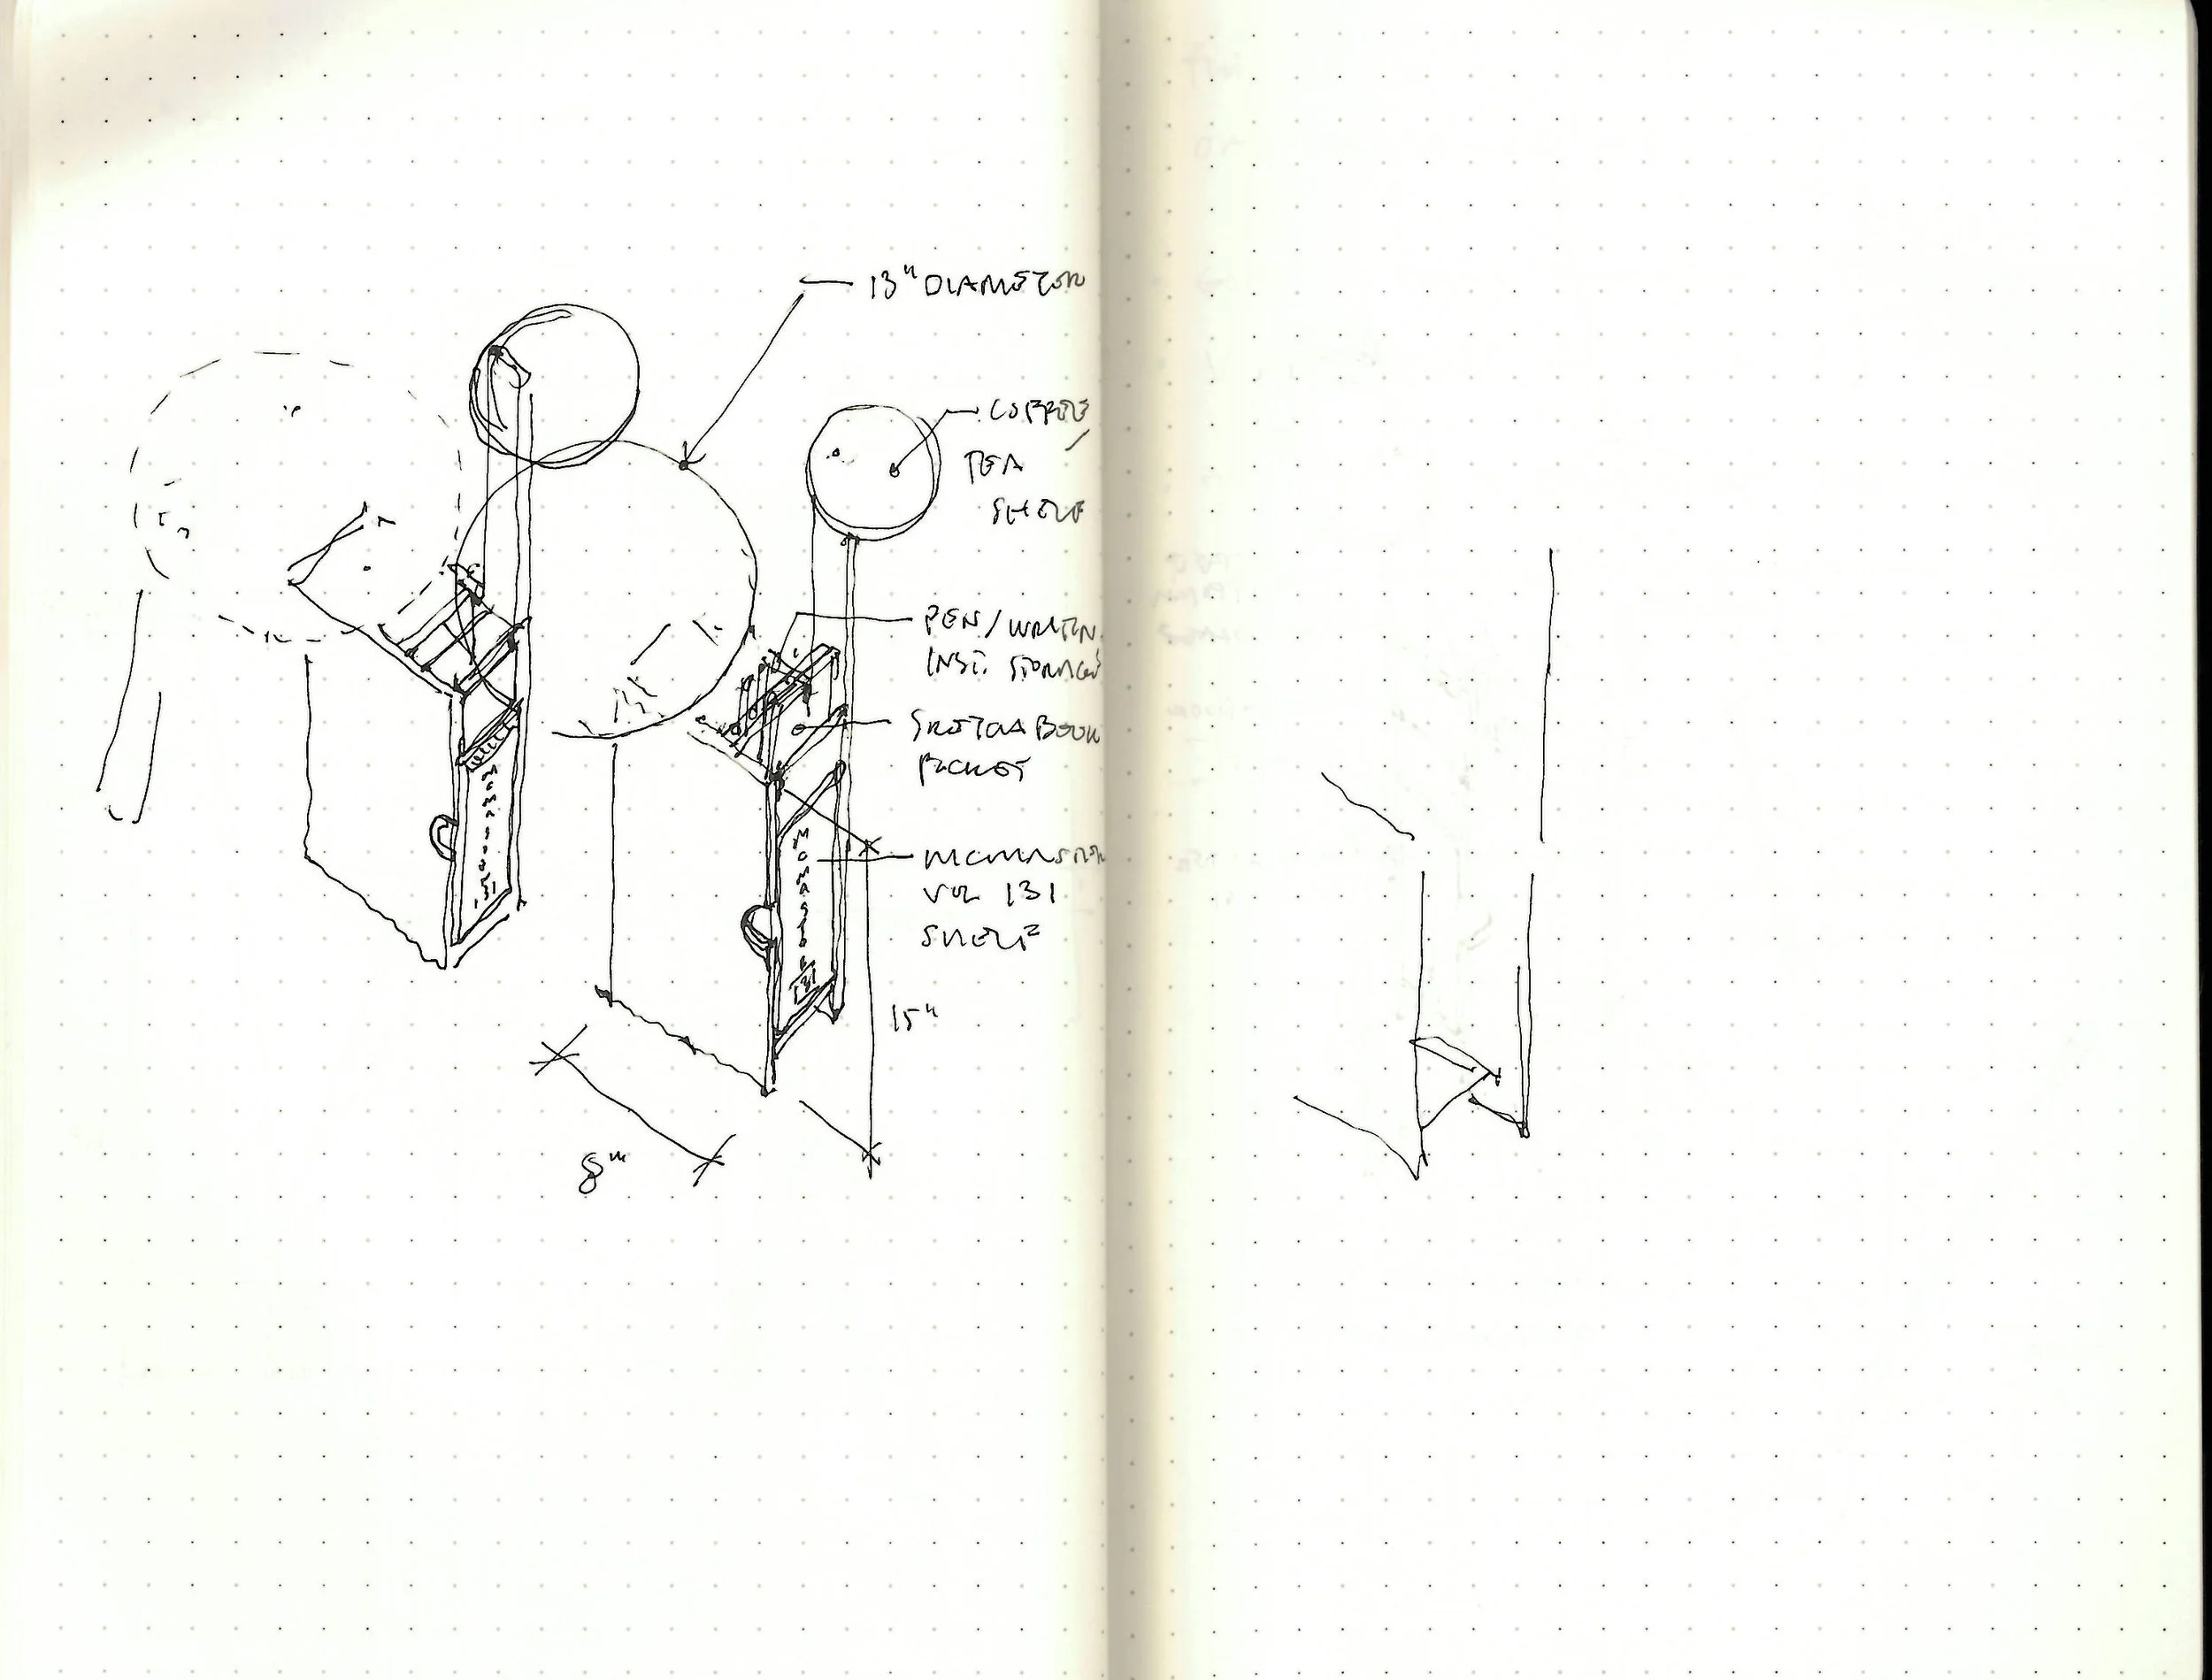 13" DIAMETER
COFFEE /
TEA
SHELF
PEN/WRITIN.
INST. STORAGE
SKETCHBOOK
POCKET
MCMASTER
VOL 131
SHELF
15"
8"
MCMASTER
131